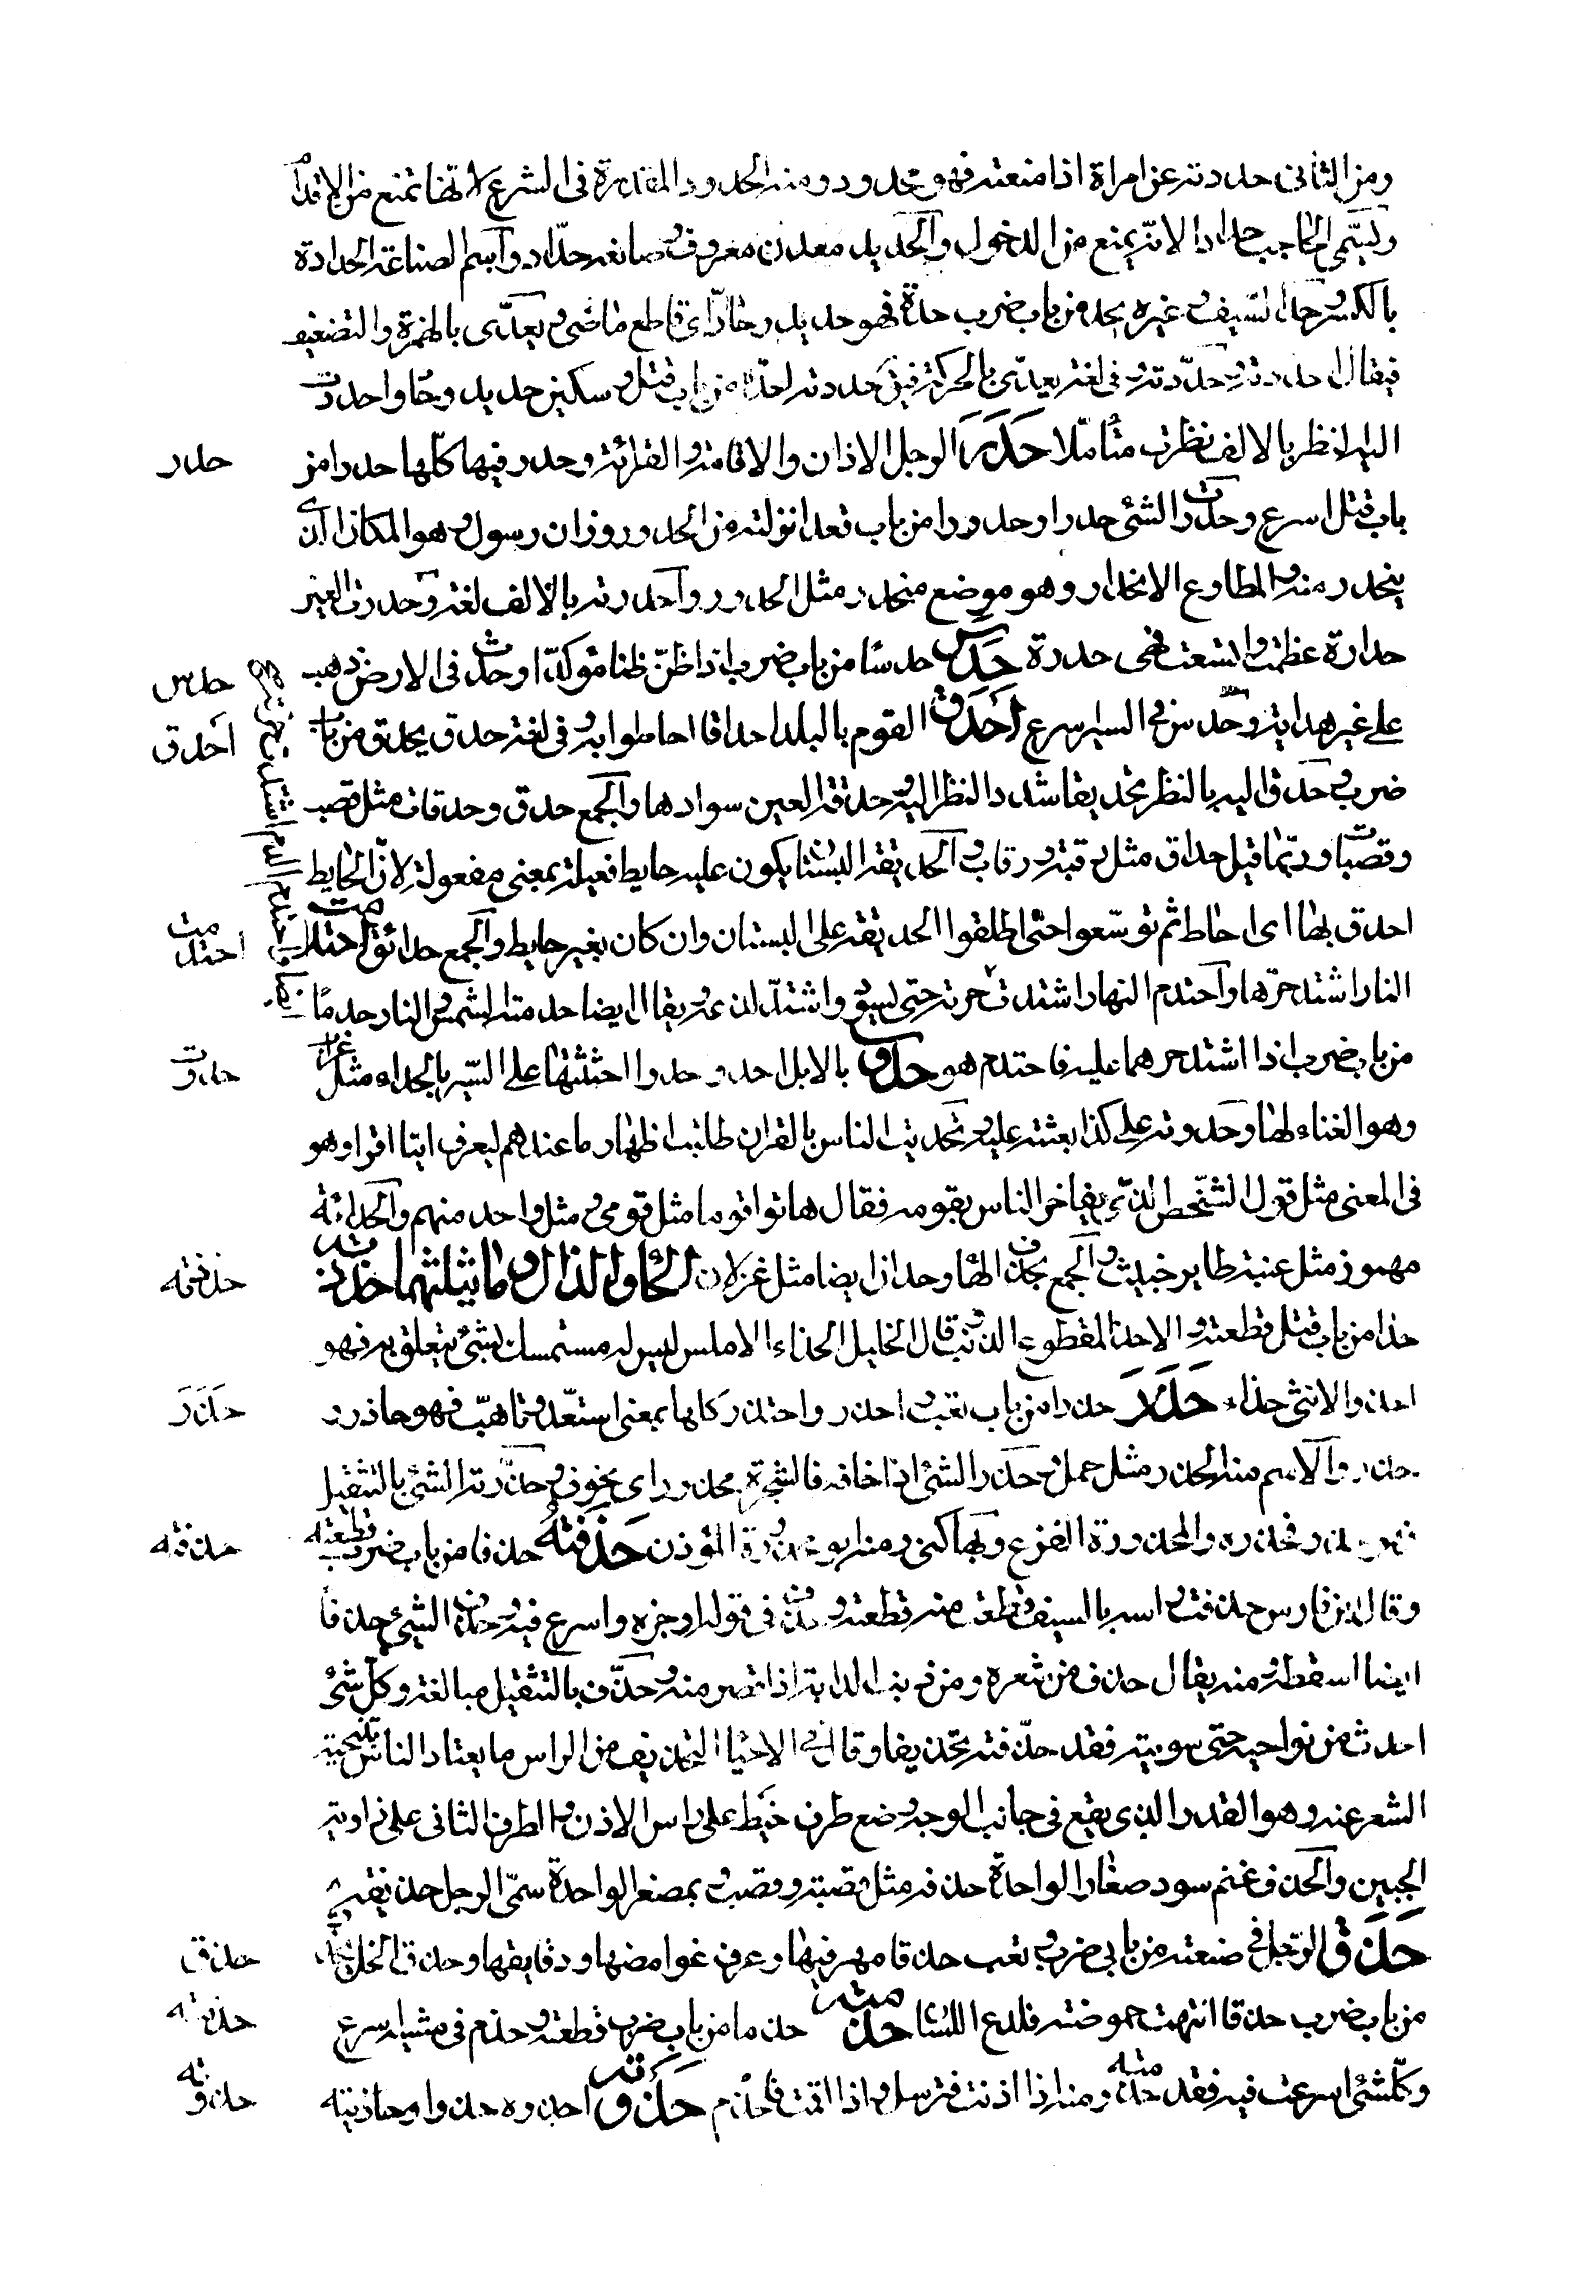 ومن الثانى حددته عن امراة اذا منعته فهو محدود ومنه الحدود المقدرة فى الشرع لانها تمنع من الاقدام
ويسمى الحاجب حدادا لانه يمنع من الدخول والحديد معدن معروف وصانعه حداد واسم الصناعة الحدادة
بالكسر وحد السيف وغيره يحد من باب ضرب حدة فهو حديد وحاد اى قاطع ماض ويعدى بالهمزة والتضعيف
فيقال احددته وحددته وفى لغة يعدى بالحركة فيق حددته احده من باب قتل وسكين حديد وحاد واحددت
اليه النظر بالالف نظرت متأملا حَدَرَ الرجل الاذان والاقامة والقرائة وحدر فيها كلها حدرا من
حدر
باب قتل اسرع وحدرت الشئ حدرا وحدورا من باب قعد انزلته من الحدور وزان رسول وهو المكان الذى
ينحدر منه والمطاوع الانحدار وهو موضع منحدر مثل الحدور واحدرته بالالف لغة وحدرت العين
حدارة عظمت واتسعت فهى حدرة حَدَسَ حدسًا من باب ضرب اذا ظن ظنا مؤكدا وحدس فى الارض ذهب
حدس
على غير هداية وحدس فى السير سرع اَحَدَقَ القوم بالبلد احداقا احاطوا به وفى لغة حدق يحدق من باب
احدق
ضرب وحدق اليه بالنظر تحديقا شدد النظر اليه وحدقة العين سوادها والجمع حدق وحدقات مثل قصب
وقصبات وربما قيل حداق مثل رقبة ورقاب والحديقة البستان يكون عليه حايط فعيلة بمعنى مفعولة لان الحايط
احدق بها اى احاط ثم توسعوا حتى اطلقوا الحديقة على البستان وان كان بغير حايط والجمع حدائق احتدمت
احتدمت
النار اشتد حرها واحتدم النهار اشتدت حرته حتى يسود واشتد لذعه ويقال ايضا حدمته الشمس والنار حدمًا
من باب ضرب اذا اشتد حرهما عليه فاحتدم هو حدوت بالابل احدو حدوا احثثتها على السير بالحداء مثل غراب
حدوت
وهو الغناء لها وحدوته على كذا بعثته عليه وتحديت الناس بالقران طالبت اظهار ما عندهم ليعرف اينا اقرا وهو
فى المعنى مثل قول الشخص الذى يفاخر الناس بقومه فقال هاتوا قوما مثل قومى ومثل واحد منهم والحداءة
مهموز مثل عنبة طاير خبيث والجمع بحذف الهاء وحدان ايضا مثل غزلان الحاء والذال وما يثلثهما حذذته
حذذته
حذا من باب قتل قطعته والاحذ المقطوع الذنب وقال الخليل الحذاء الاملس ليس له مستمسك بشئ يتعلق به فهو
احذ والانثى حذاء حَذِرَ حذرا من باب تعب واحذر واحتذر كلها بمعنى استعد وتاهب فهو حاذر و
حَذِرَ
حذر والاسم منه الحذر مثل حمل وحذر الشئ اذا خافه فالشئ محذور اى مخوف وحذرته الشئ بالتثقيل
فحذره والمحذورة الفزع وبها كنى ومنه ابو محذورة المؤذن حَذَفْتُهُ حذفا من باب ضرب قطعته
حذفته
وقال ابن فارس حذفت راسه بالسيف قطعت منه قطعة وحذف فى قوله اوجزه واسرع فيه وحذف الشئ حذفا
ايضا اسقطه ومنه يقال حذف من شعره ومن ذنب الدابة اذا قصر منه وحذف بالتثقيل مبالغة وكل شئ
اخذت من نواحيه حتى سويته فقد حذفته تحذيفا وقال فى الاحياء التحذيف من الراس ما يعتاد الناس تنحية
الشعر عنه وهو القدر الذى يقع فى جانب الوجه وضع طرف خيط على راس الاذن والطرف الثانى على زاوية
الجبين والحذف غنم سود صغار الواحدة حذفة مثل قصبة وقصب وبمصغر الواحدة سمى الرجل حذيفة
حَذَقَ الرجل فى صنعته من بابى ضرب وتعب حذقا مهر فيها وعرف غوامضها ودقايقها وحذق الخل
حذق
من باب ضرب حذقا انتهت حموضته فلدع اللسان حذمته حذما من باب ضرب قطعته وحذم فى مشيه اسرع
حذمته
وكل شئ اسرعت فيه فقد حذمته ومنه اذا اذنت فترسل واذا اقمت فاحذم حَذَوْتُه احذوه حذوا وحاذيته
حذوته